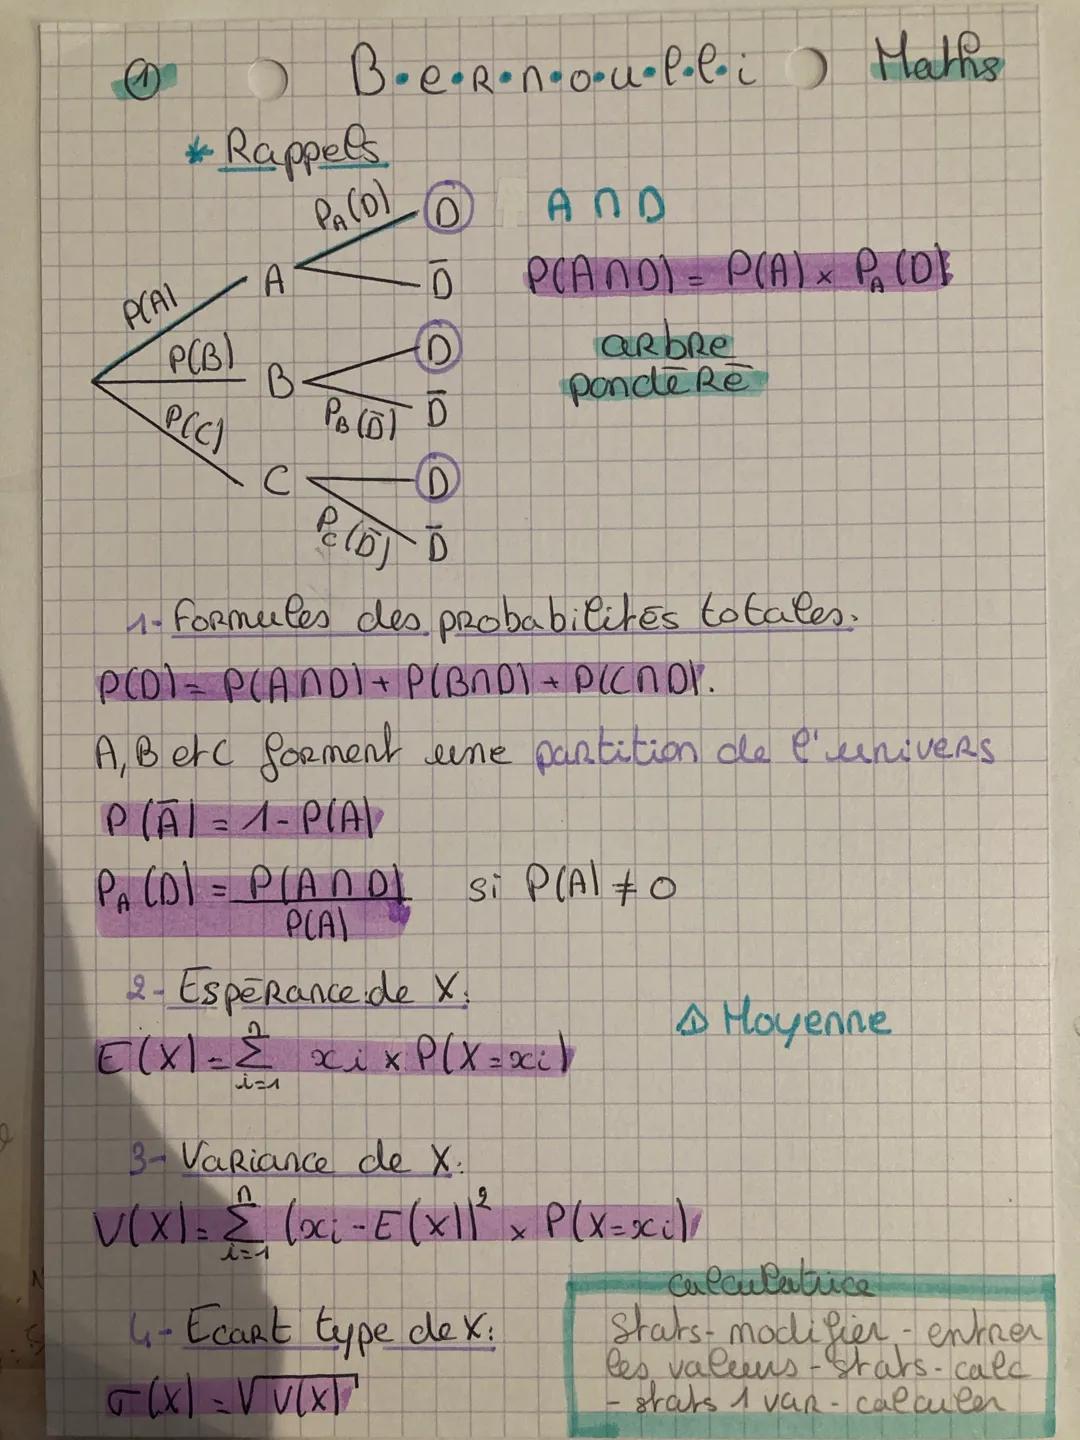 ① Bernoulli Maths
* Rappels
P_A(D) D A∩D
A D̄ P(A∩D) = P(A) × P_A(D)
P(A)
P(B) B D arbre
P_B(D̄) D̄ pondéré
P(C)
C D
P_C(D̄) D̄
1- Formules des probabilités totales.
P(D) = P(A∩D) + P(B∩D) + P(C∩D).
A, B et C forment une partition de l'univers
P(Ā) = 1 - P(A)
P_A(D) = P(A∩D) / P(A) si P(A) ≠ 0
2- Espérance de X:
⚠ Moyenne
E(X) = Σ_{i=1}^{n} xi × P(X=xi)
3- Variance de X:
V(X) = Σ_{i=1}^{n} (xi - E(X))² × P(X=xi)
4- Ecart type de X:
σ(X) = √V(X)
calculatrice
Stats - modifier - entrer
les valeurs - stats - calc
- stats 1 var - calculer